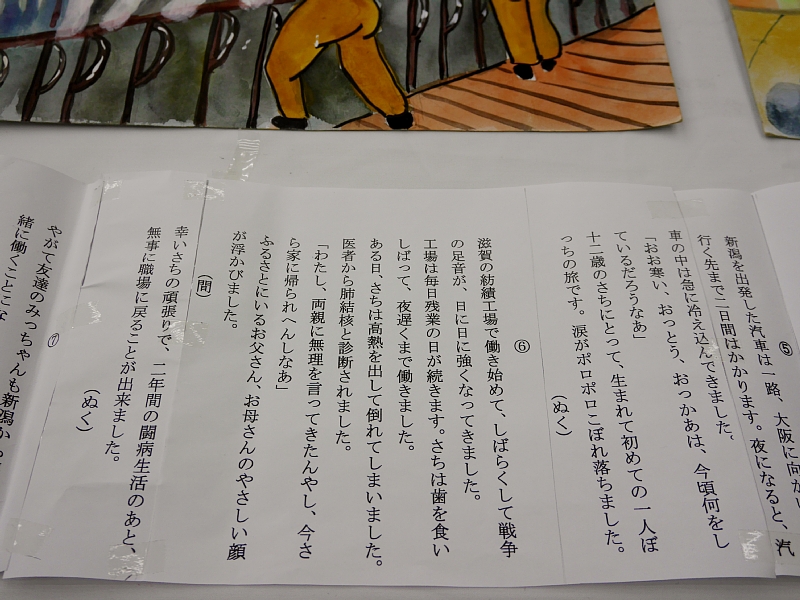 ⑤
新潟を出発した汽車は一路、大阪に向か
行く先まで一日間はかかります。夜になると、汽
車の中は急に冷え込んできました。
「おお寒い、おっとう、おっかあは、今頃何をし
ているだろうなあ」
十二歳のさちにとって、生まれて初めての一人ぼ
っちの旅です。涙がポロポロこぼれ落ちました。
（ぬく）
⑥
滋賀の紡績工場で働き始めて、しばらくして戦争
の足音が、日に日に強くなってきました。
工場は毎日残業の日が続きます。さちは歯を食い
しばって、夜遅くまで働きました。
ある日、さちは高熱を出して倒れてしまいました。
医者から肺結核と診断されました。
「わたし、両親に無理を言ってきたんやし、今さ
ら家に帰られへんしなあ」
ふるさとにいるお父さん、お母さんのやさしい顔
が浮かびました。
（間）
幸いさちの頑張りで、二年間の闘病生活のあと、
無事に職場に戻ることが出来ました。
（ぬく）
⑦
やがて友達のみっちゃんも新潟か
緒に働くことにな